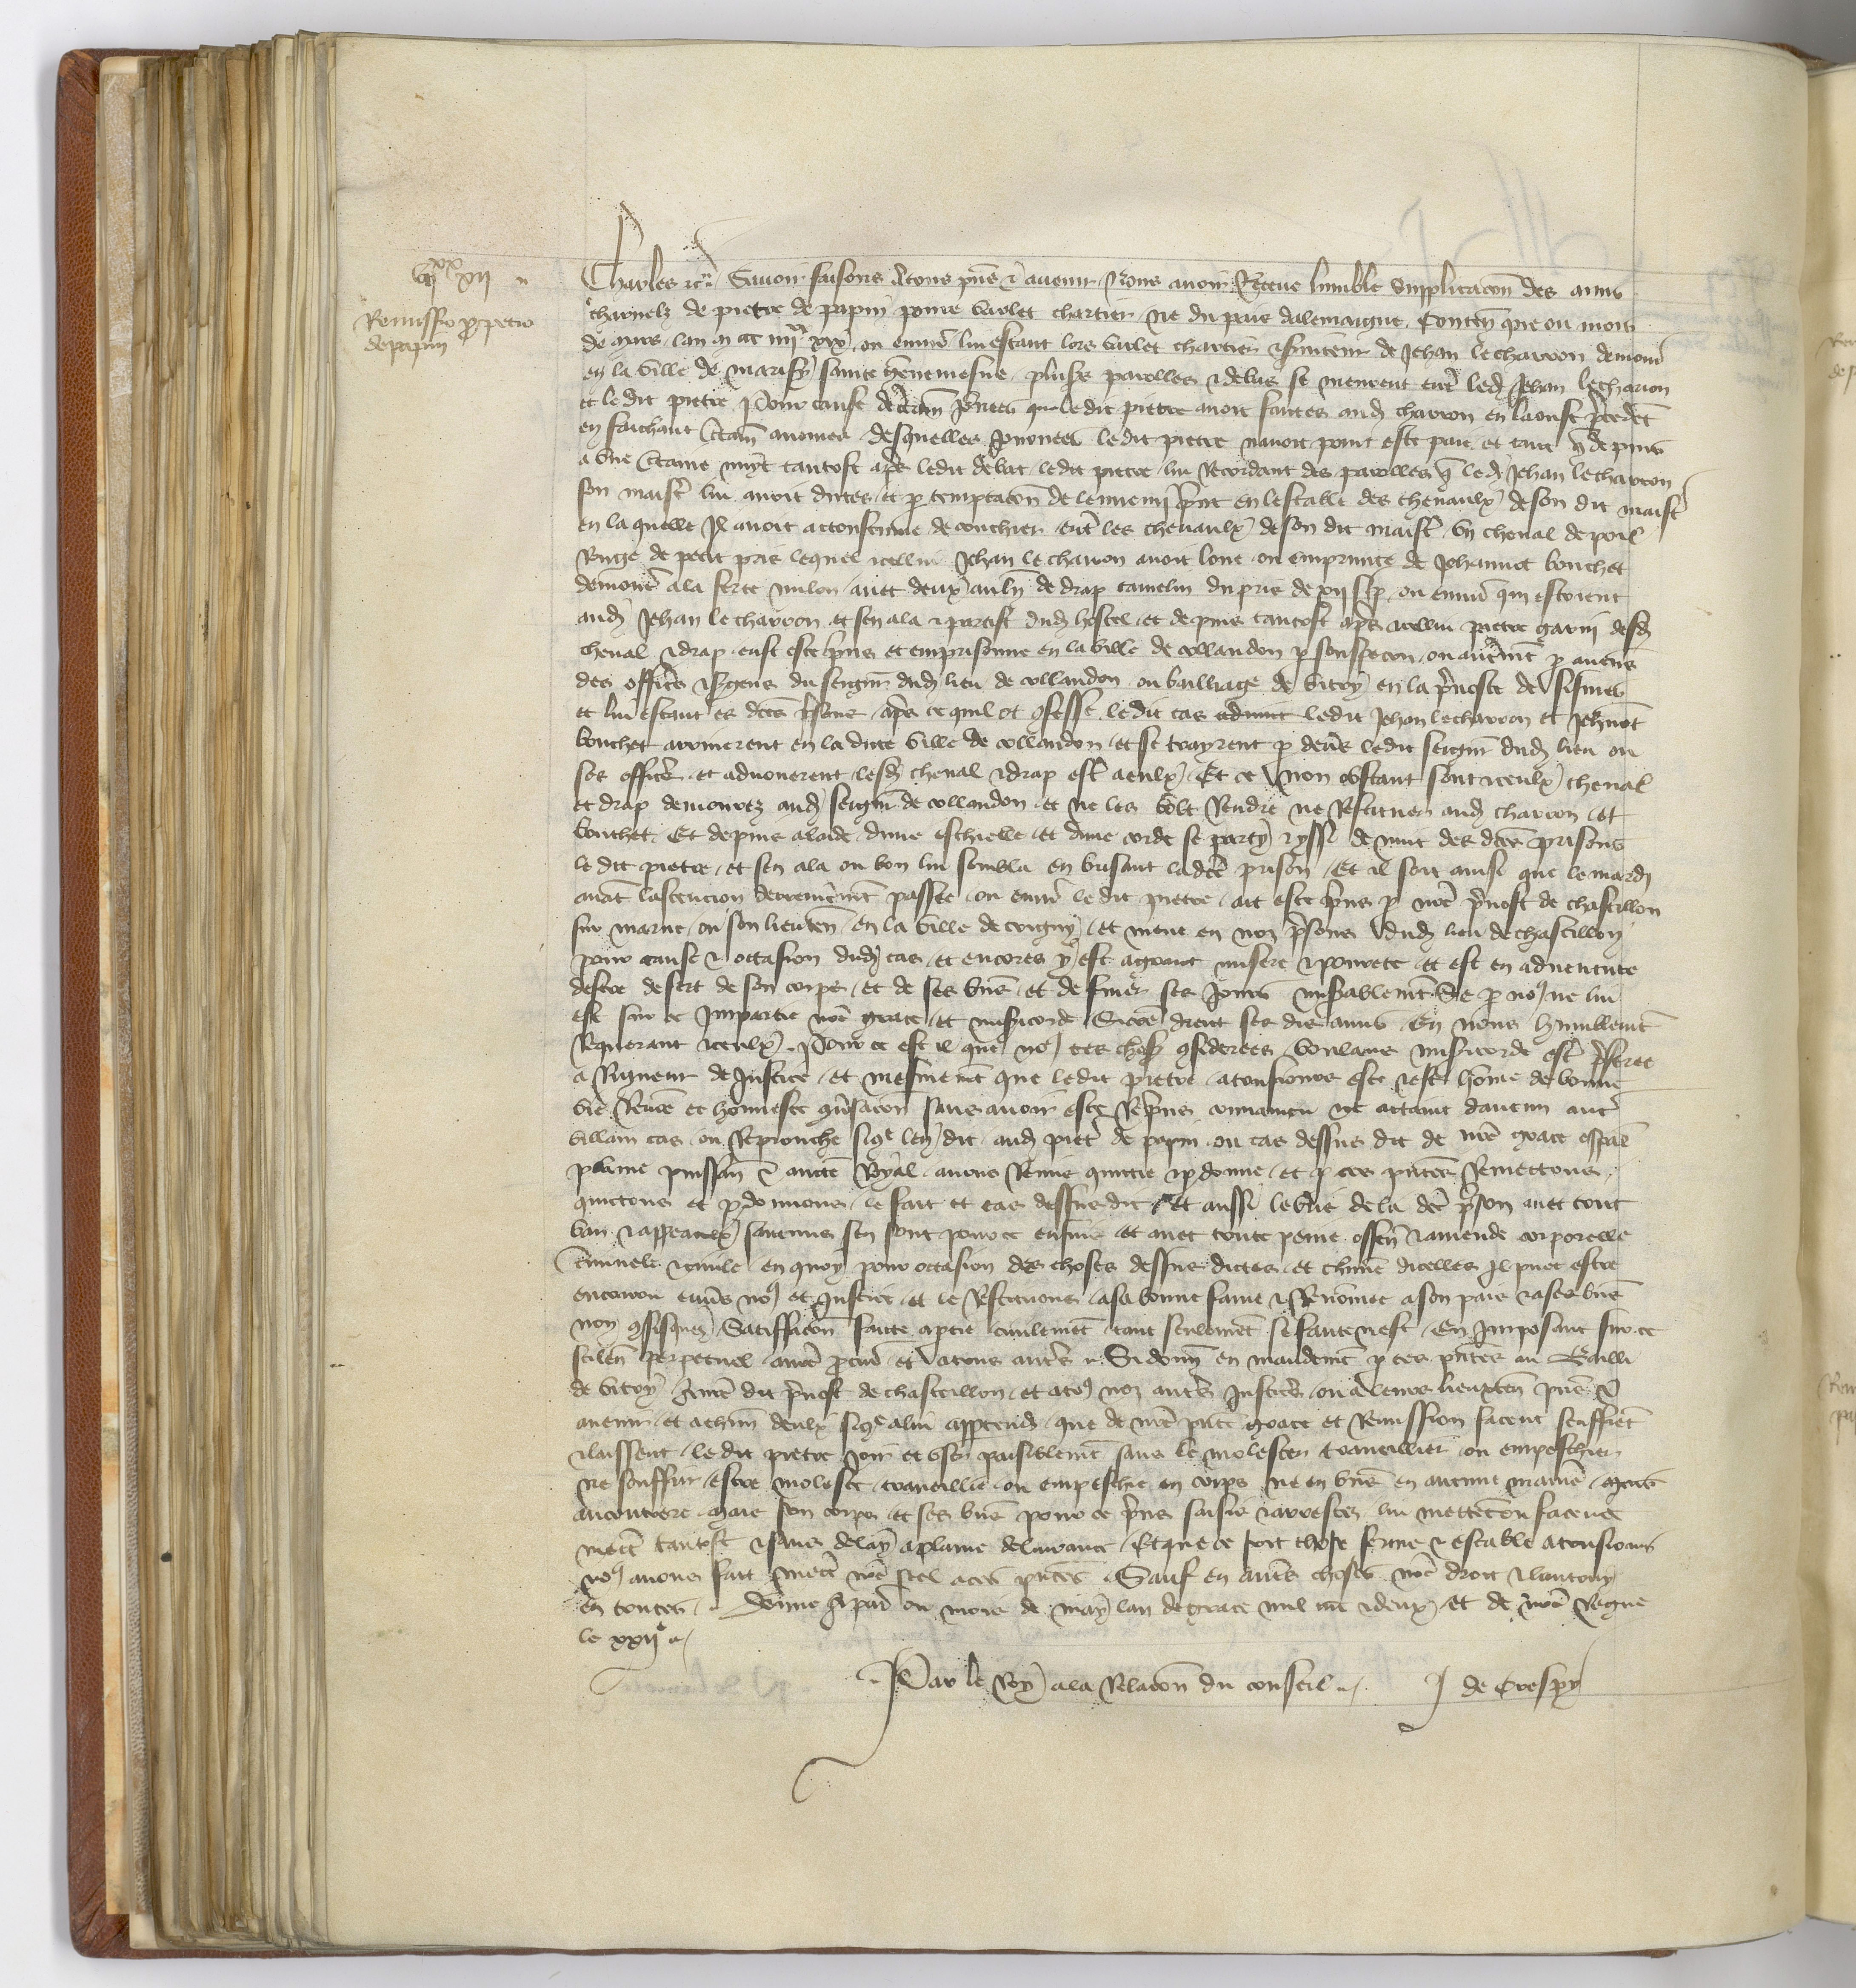 vijxx xij
Remissio pro petro
de papin
Charles etc. Savoir faisons a tous pns et avenir Nous avoir Receue lumble Supplicacon des amis
charnelz de pietre de papin povre varlet chartier ne du pais dalemaigne Conten que ou mois
de mars lan m ccc iiijxx xix ou envir lui estant lors varlet chartier et s'viteur de Jehan lecharron demour
en la ville de marisy sainte geneviesve plusrs parolles et debas se meurent entre led Jehan lecharron
et le dit pietre Pour cause de ctain Jornees que le dit pietre avoit faites aud charron en laoust pcedet
en faichant ctain avoines desquelles Journees le dit pietre navoit point este paie et tant que depuis
a une ctaine nuyt tantost aps ledit debat le dit pietre lui Recordant des parolles que led Jehan lecharron
son maistr lui avoit dittes et p temptacon de lennemi print en lestable des chevaulx de son dit maistr
en la quelle Il avoit acoustume de couchier entre les chevaulx de son dit maistr un cheval de poil
Rouge de petit pris lequel icellui Jehan le charron avoit loue ou emprunte de Jehannot bouchet
demour a la ferte milon avec deux aulns de drap camelin du pris de xij s p ou envir qui estoient
aud Jehan lecharron et sen ala et partist dud hostel et depuis tantost aps icellui pietre garni desd
cheval et drap eust este pris et emprisonne en la ville de collandon p souspecon ou autremt p aucuns
des offics et sgens du seignr dud lieu de collandon ou bailliage de vitry en la pvoste de
et lui estant es dctes prisons aps ce quil ot gfesse le dit cas ledit Jehan lecharron et Jehnot
bouchet arriverent en la dicte ville de collandon et se trayrent p devs le dit seignr dud lieu ou
ses offics et advouerent lesd cheval et drap estr a eulx Et ce non obstant sont iceulx cheval
et drap demourez aud seignr de collandon et ne les volt Rendre ne Restituer aud charron et
bouchet Et depuis a laide dune eschielle et dune corde se party et yssi de nuit des dctes prisons
le dit pietre et sen ala ou bon lui sembla en brisant la dcte prison Et il soit ainsi que le mardi
avat lascencion derrenieremt passee ou envir le dit pietre ait este pris p nre pvost de chastillon
sur marne ou son lieuten en la ville de et mene en noz prisons dud lieu de chastillon
pour cause et occasion dud cas et encores y est a grant misere et povrete et est en adventure
destre desert de son corps et de ses biens et de finer ses Jours misablemt Se p nous ne lui
est sur ce Impartie nre grace et misicorde Sicome dient ses dis amis En nous humblemt
Requerant iceulx Pour ce est il que nous ces chos gsiderees voulans misicorde estr pferee
a Rigueur de Justice et mesmemt que le dit pietre a tousjours este et est home de bonne
vie Renome et honneste gvsacon sans avoir este Repris convaincu ne attaint daucun autr
villain cas ou Reprouche sicoe len dit aud pietre de papin ou cas dessus dit de nre grace espal
plaine puissan et aucte Royal avons Remis quicte et pdonne et p ces pntes Remettons
quictons et pdonnons le fait et cas dessusdit Et aussi le bris de la dcte prison avec tout
ban et appeaulx saucuns sen sont pour ce ensuis et avec toute peine offen et amende corporelle
cminele et civile en quoy pour occasion des choses dessus dictes et chune dicelles Il puet estre
encouru envrs nous et Justice et le Restituons a sa bonne fame et Renomee a son pais et a ses biens
non gfisquez Satisfacon faicte a ptie civilemt tant seulemt se faite nest En Imposant sur ce
silen perpetuel a nre pcur et a tous autrs Si donn en mandemt p ces pntes au Bailli
de vitry a nre dit pvost de chastillon et a tous noz autrs Justics ou a leurs lieuxten pns et
avenir et a chun deulx sicoe a lui apptendr que de nre pnte grace et Remission facent seuffret
et laissent le dit pietre Joir et user paisiblemt sans le molester traveillier ou empeschier
ne souffrir estre moleste traveillie ou empeschie en corps ne en biens en aucune maniere
au contraire mais son corps et ses biens pour ce pris saisis et arrestes lui mettent ou facent
mettr tantost et sans delay a plaine delivrance Et que ce soit chose ferme et estable a tousjours
nous avons fait mettr nre scel a ces pntes Sauf en autrs choses nre droit et lautruy
en toutes Donne a paris ou mois de may lan de grace mil cccc et deux Et de nre Regne
le xxije
Par le Roy a la Relacon du conseil J de Crespy